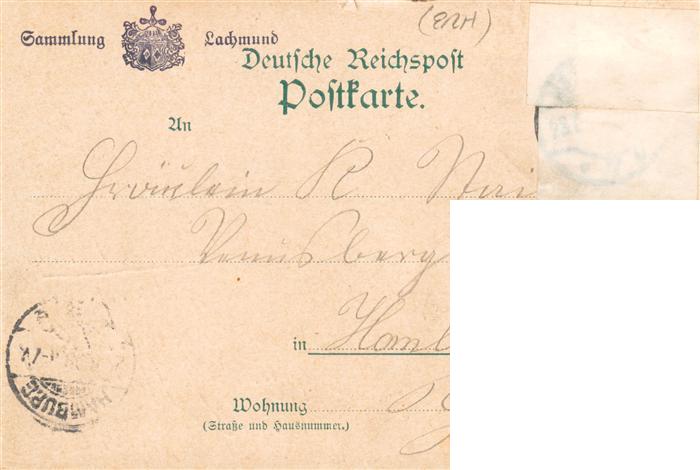 (ERH)
Sammlung Lachmund
Deutsche Reichspost
Postkarte.
An
Fräulein K
Venusberg
in Ham
Wohnung
(Straße und Hausnummer.)
HAMBURG